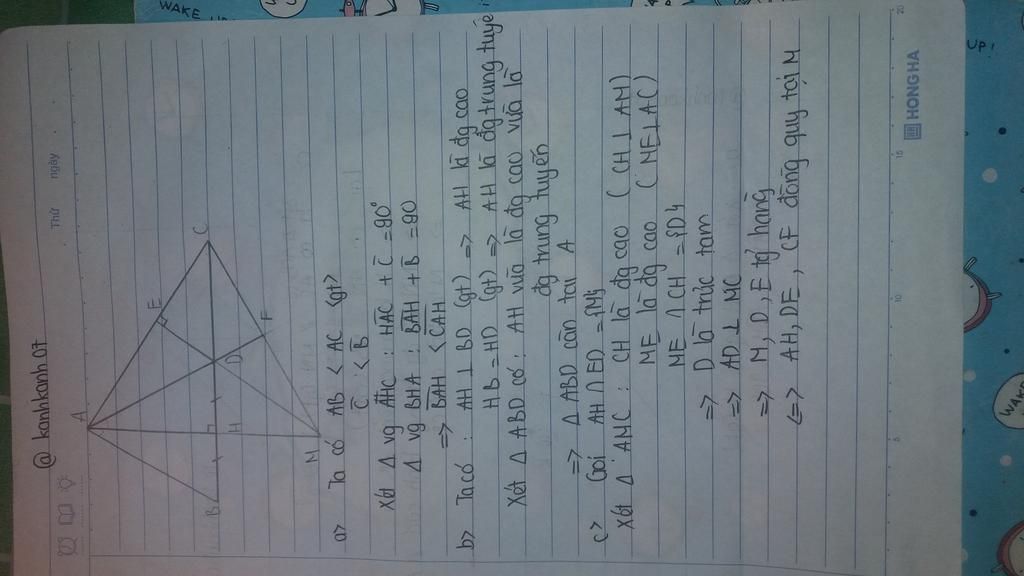 WAKE UP!
UP!
WAKE
Thứ ngày
@ kanhkanh 07
A
E
C
B
H
D
F
M
a> Ta có AB < AC (gt)
C < B
Xét Δ vg AHC : HAC + C = 90°
Δ vg BHA : BAH + B = 90
=> BAH < CAH
b> Ta có : AH ⊥ BD (gt) => AH là đg cao
HB = HD (gt) => AH là đg trung tuyế
Xét Δ ABD có : AH vừa là đg cao vừa là
đg trung tuyến
=> Δ ABD cân tại A
c> Gọi AH ∩ ED = {M}
Xét Δ AMC : CH là đg cao ( CH ⊥ AM)
ME là đg cao ( ME ⊥ AC)
ME ∩ CH = {D}
=> D là trực tam
=> AD ⊥ MC
=> M, D, E tg hàng
<=> AH, DE, CF đồng quy tại M
5 10 15 20
HONG HA